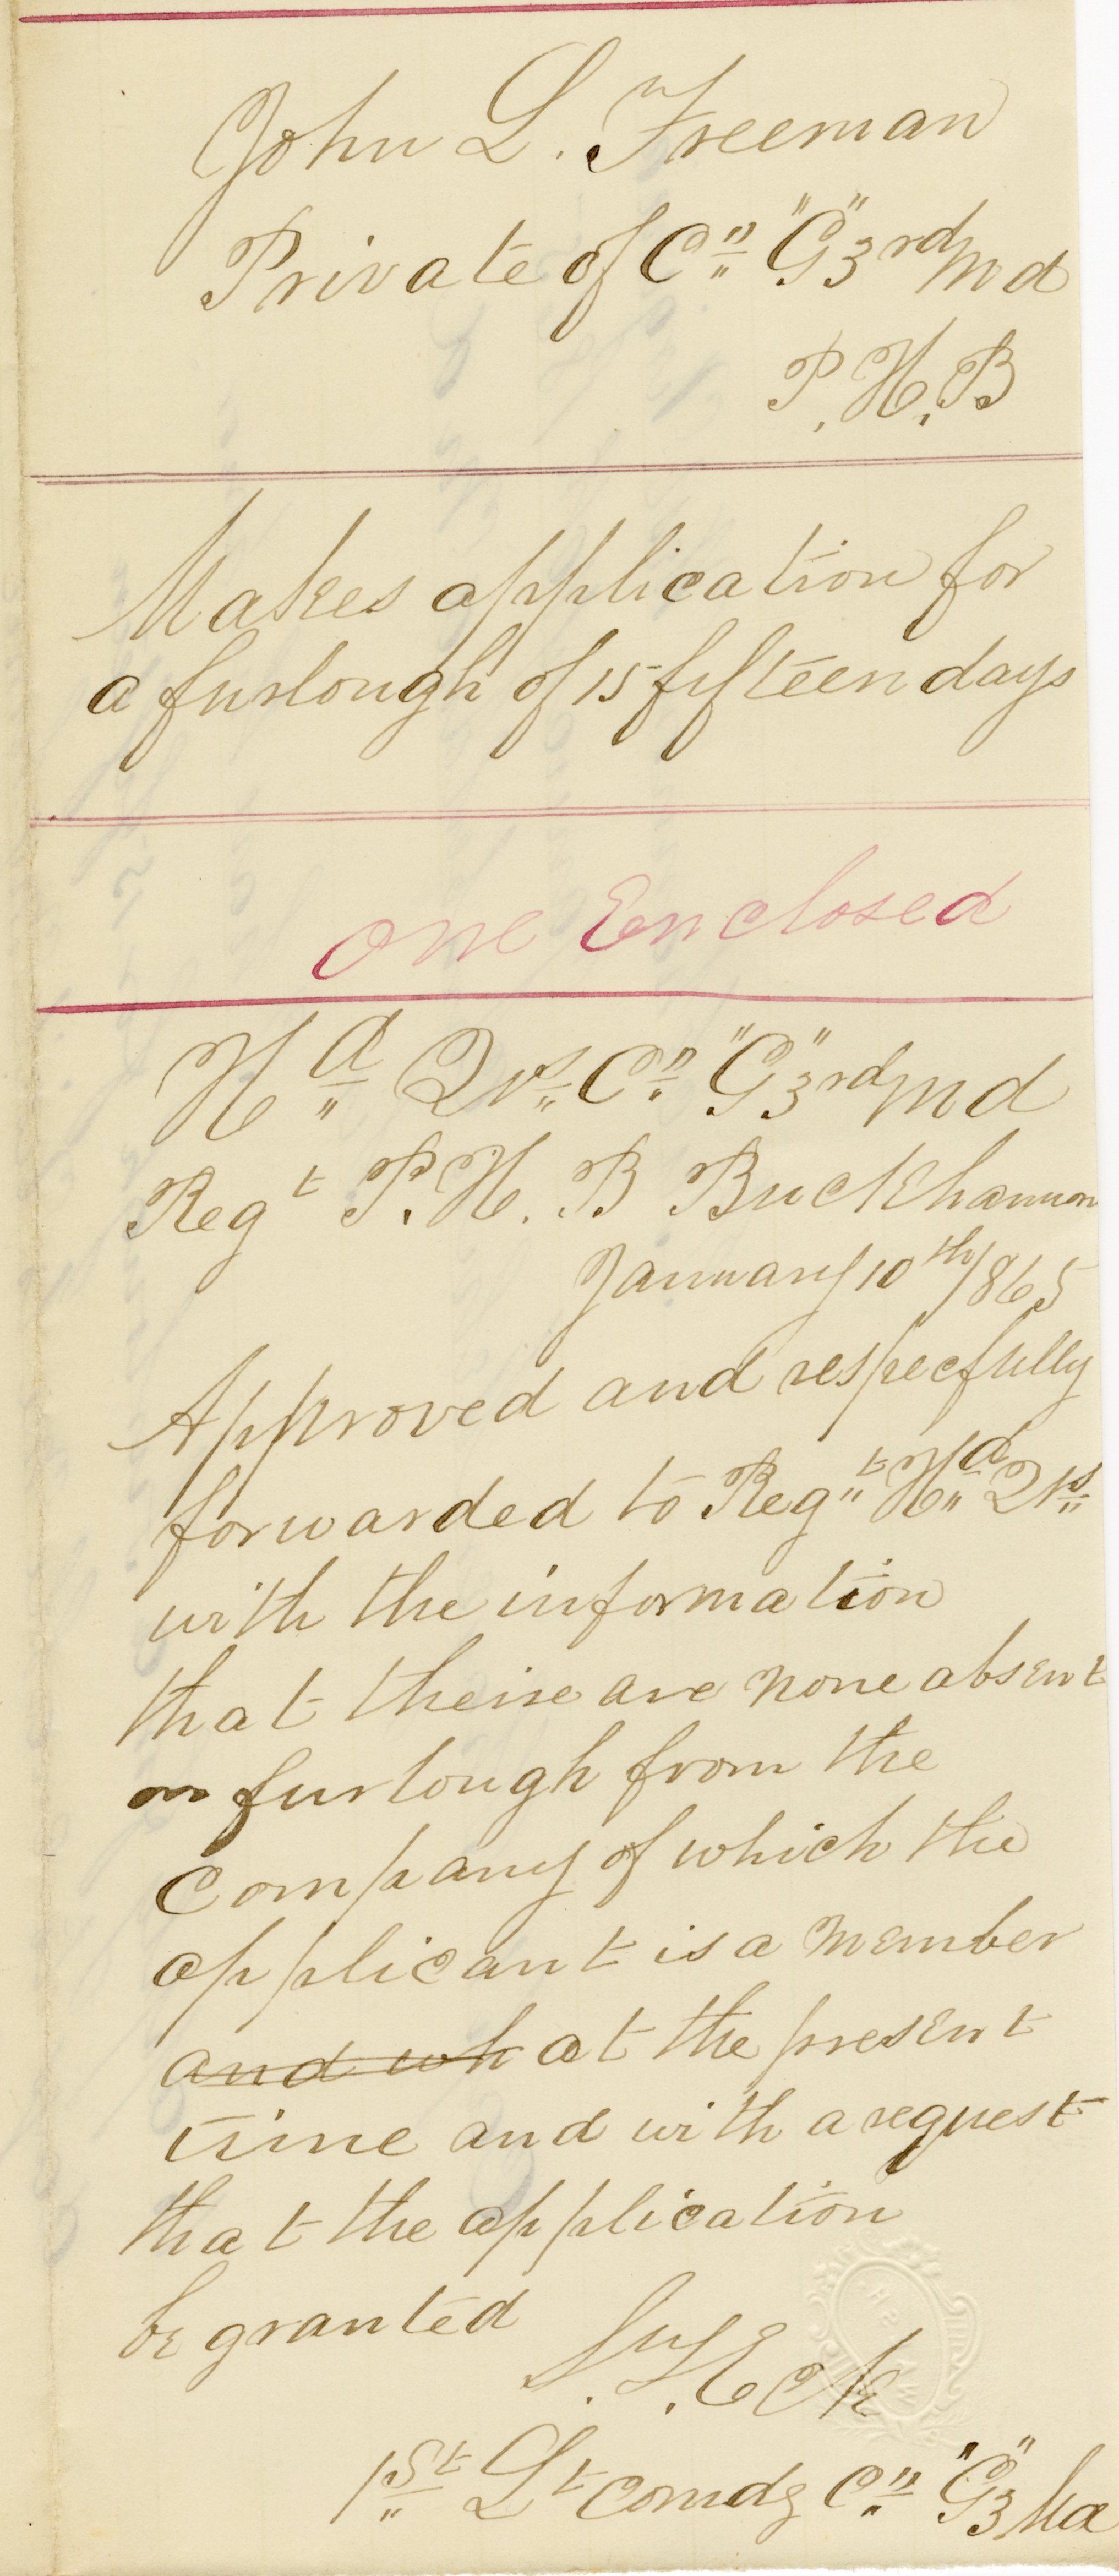 John L. Freeman
Private of Co "G" 3rd Md
P. H. B
Makes application for
a furlough of 15 fifteen days
One Enclosed
Hd Qrs Co "G" 3rd Md
Regt P. H. B Buckhannon
January 10th 1865
Approved and respecfully
forwarded to Regt Hd Qrs
with the information
that theire are none absent
on furlough from the
Company of which the
applicant is a member
and wh at the present
time and with a request
that the application
be granted
Eck
1st Lt Comdg Co "G" 3 Md